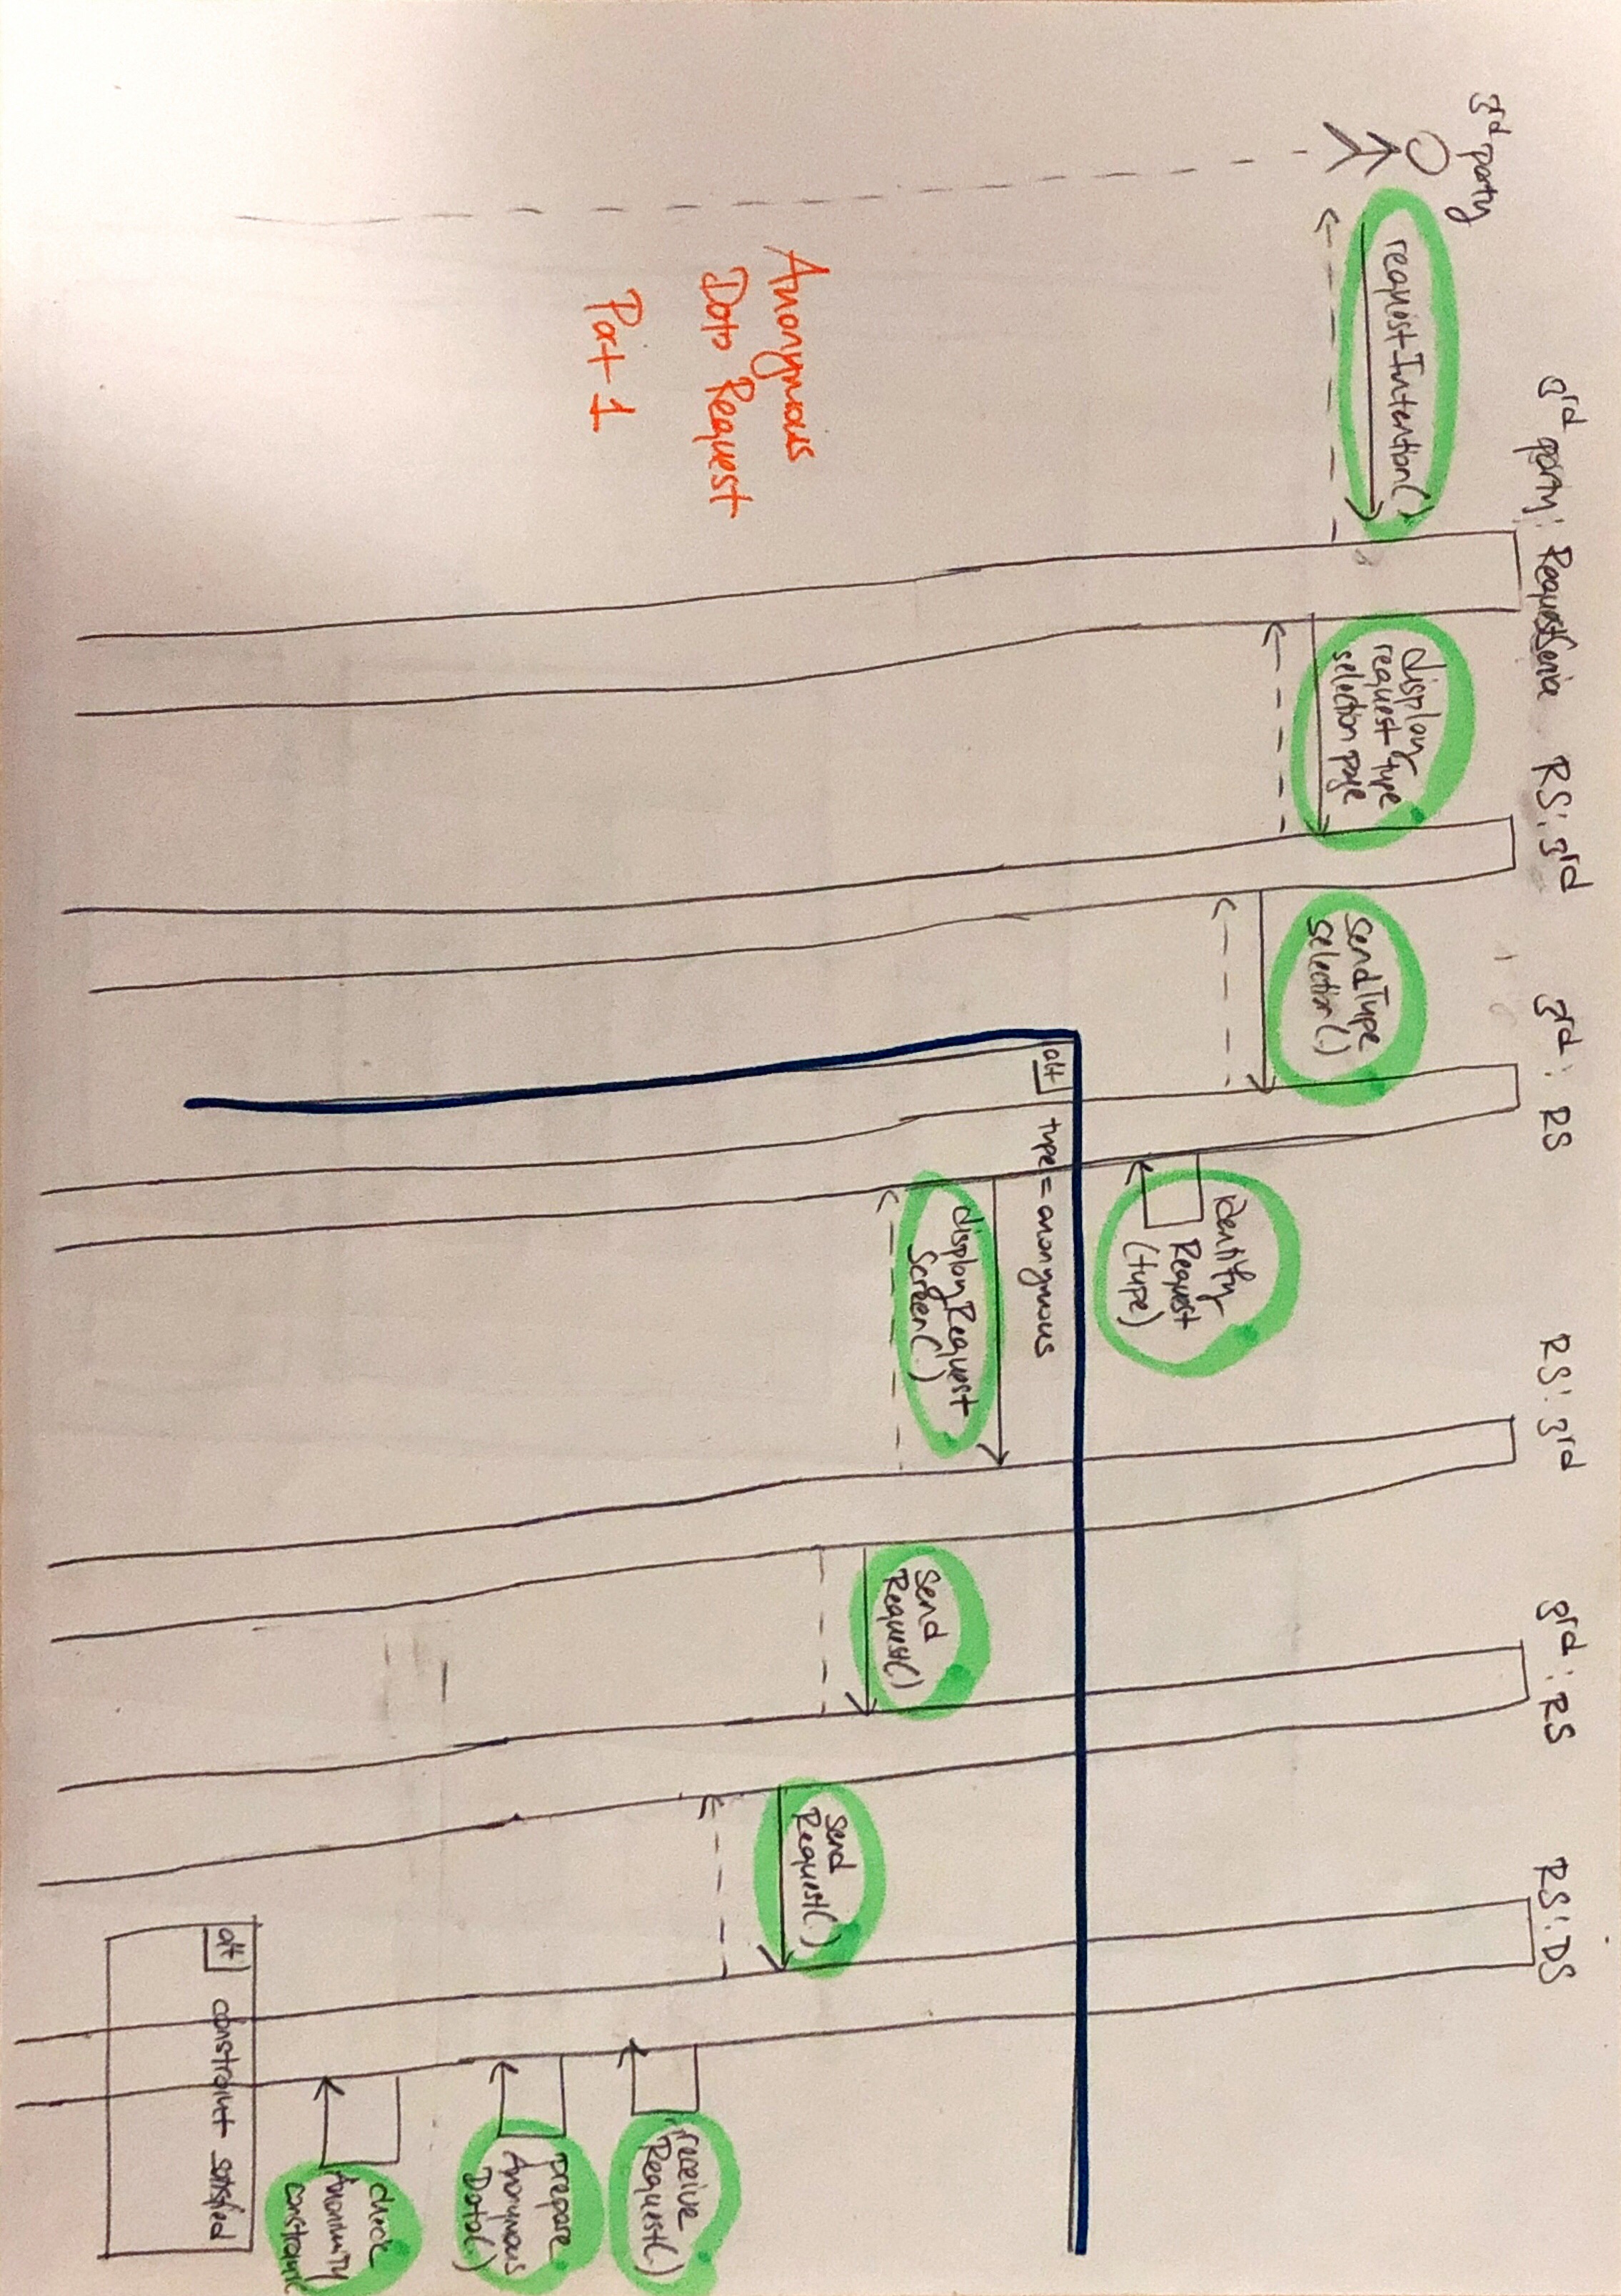 3rd party
3rd party: RequestService
RS: 3rd
3rd: RS
RS: 3rd
3rd: RS
RS: DS
requestIntention()
display
request type
selection page
sendType
selection()
identify
Request
(type)
alt
type = anonymous
displayRequest
Screen()
send
Request()
send
Request()
receive
Request()
prepare
Anonymous
Data()
check
Anonimity
constraint
alt
constraint satisfied
Anonymous
Data Request
Part 1